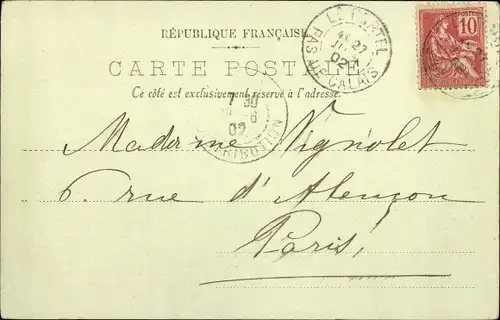 RÉPUBLIQUE FRANÇAISE
CARTE POSTALE
Ce côté est exclusivement réservé à l'adresse.
LE PORTEL
27
02
PAS DE CALAIS
10
7 30
6
02
DISTRIBUTION
Madame Vignolet
6. rue d'Alençon
Paris,